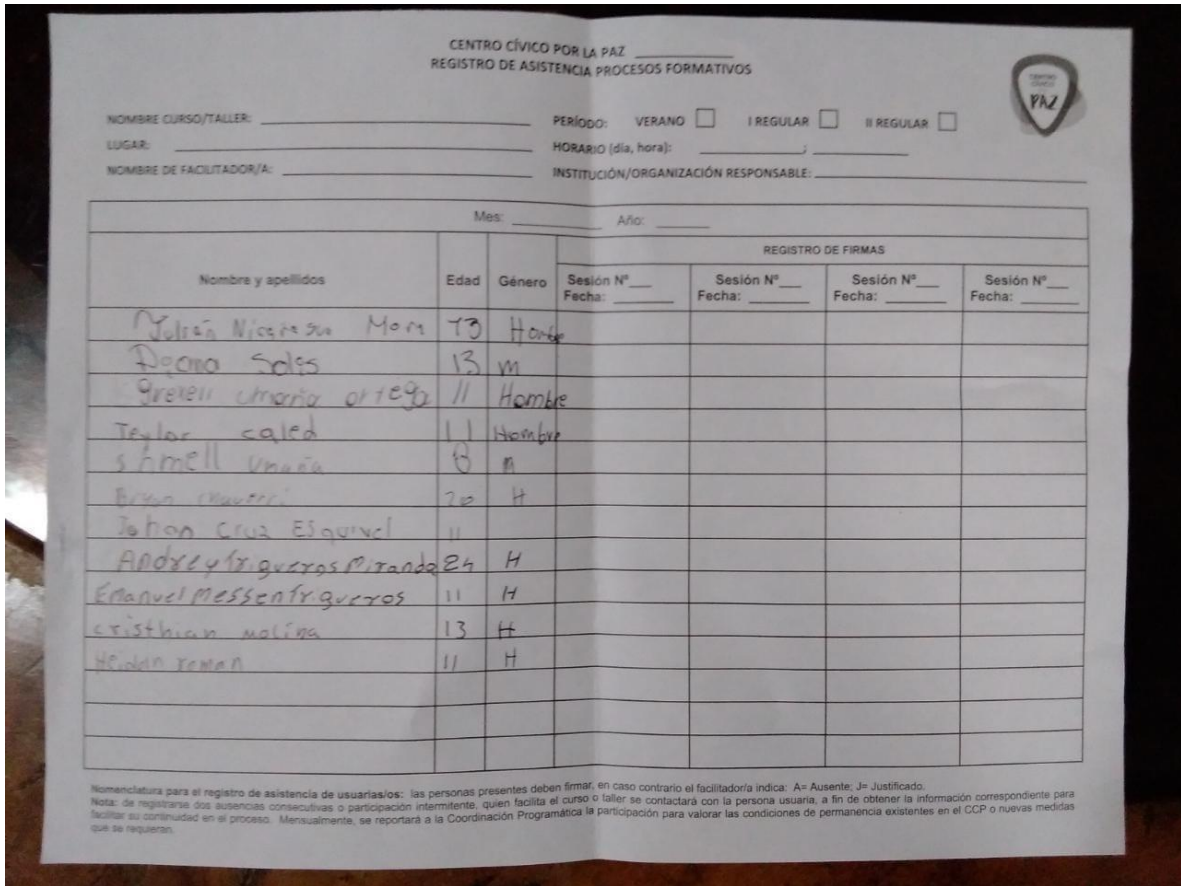 CENTRO CÍVICO POR LA PAZ
REGISTRO DE ASISTENCIA PROCESOS FORMATIVOS
CENTRO CÍVICO PAZ
NOMBRE CURSO/TALLER: PERÍODO: VERANO I REGULAR II REGULAR
LUGAR: HORARIO (día, hora): ;
NOMBRE DE FACILITADOR/A: INSTITUCIÓN/ORGANIZACIÓN RESPONSABLE:
Mes: Año:
REGISTRO DE FIRMAS
Nombre y apellidos Edad Género Sesión N° Sesión N° Sesión N° Sesión N°
Fecha: Fecha: Fecha: Fecha:
Julián Mora 13 Hombre
Solis 13 m
ortega 11 Hombre
Teylor caled 11 Hombre
shmell 8
20 H
Johan Cruz Esquivel 11
Andrey Trigueros Miranda 24 H
Emanuel Messen Trigueros 11 H
cristhian molina 13 H
roman 11 H
Nomenclatura para el registro de asistencia de usuarias/os: las personas presentes deben firmar, en caso contrario el facilitador/a indica: A= Ausente; J= Justificado.
Nota: de registrarse dos ausencias consecutivas o participación intermitente, quien facilita el curso o taller se contactará con la persona usuaria, a fin de obtener la información correspondiente para
facilitar su continuidad en el proceso. Mensualmente, se reportará a la Coordinación Programática la participación para valorar las condiciones de permanencia existentes en el CCP o nuevas medidas
que se requieran.